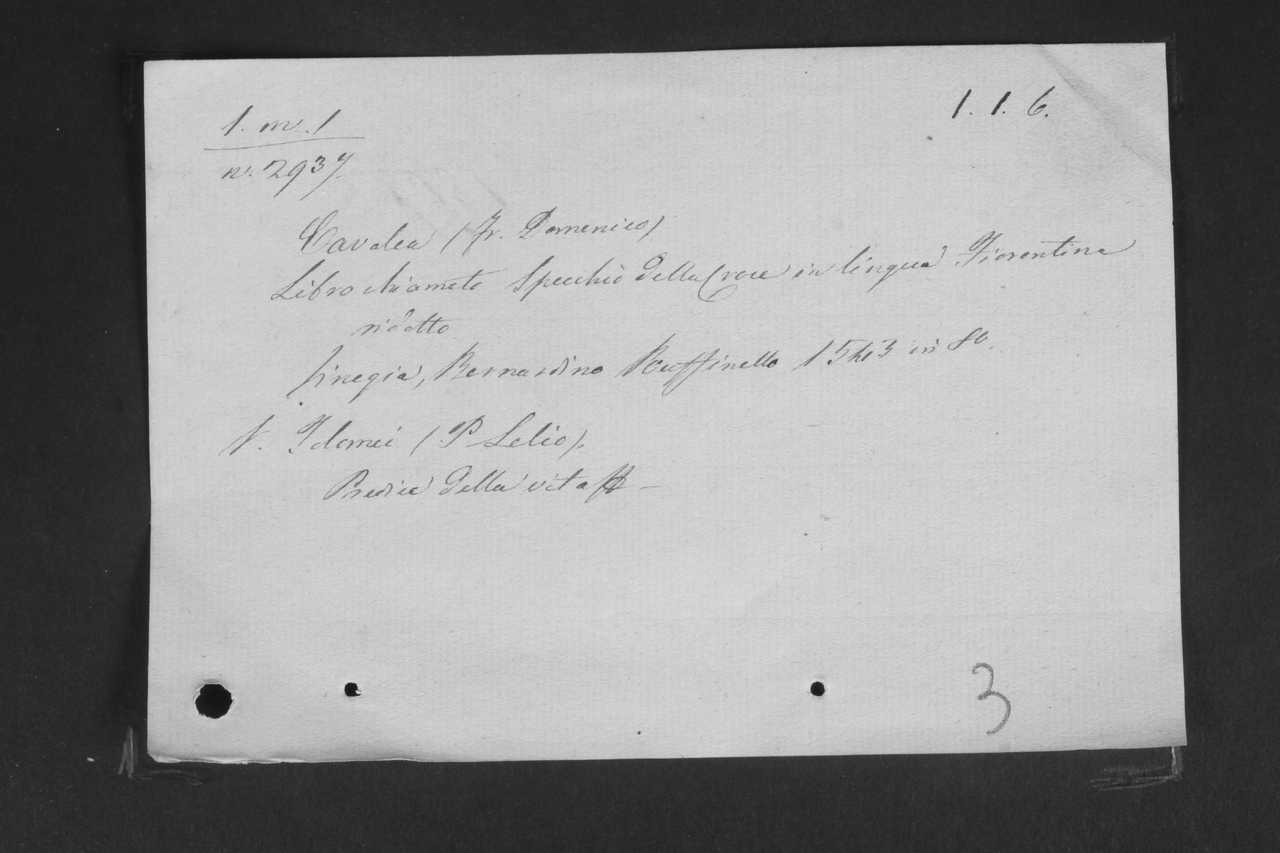 1. m. 1
1. 1. 6.
nr. 2937.
Cavalca (Fr. Domenico)
Libro chiamato Specchio della Croce in lingua Fiorentina
ridotto
Vinegia, Bernardino Ruffinello 1543 in 8o.
V. Idomei (P. Lelio).
Predica della vita
3